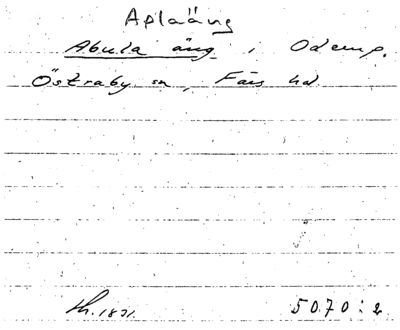 Aplaäng
Abula äng i Odemp.
Östraby sn, Färs hd
1831. 5070:2